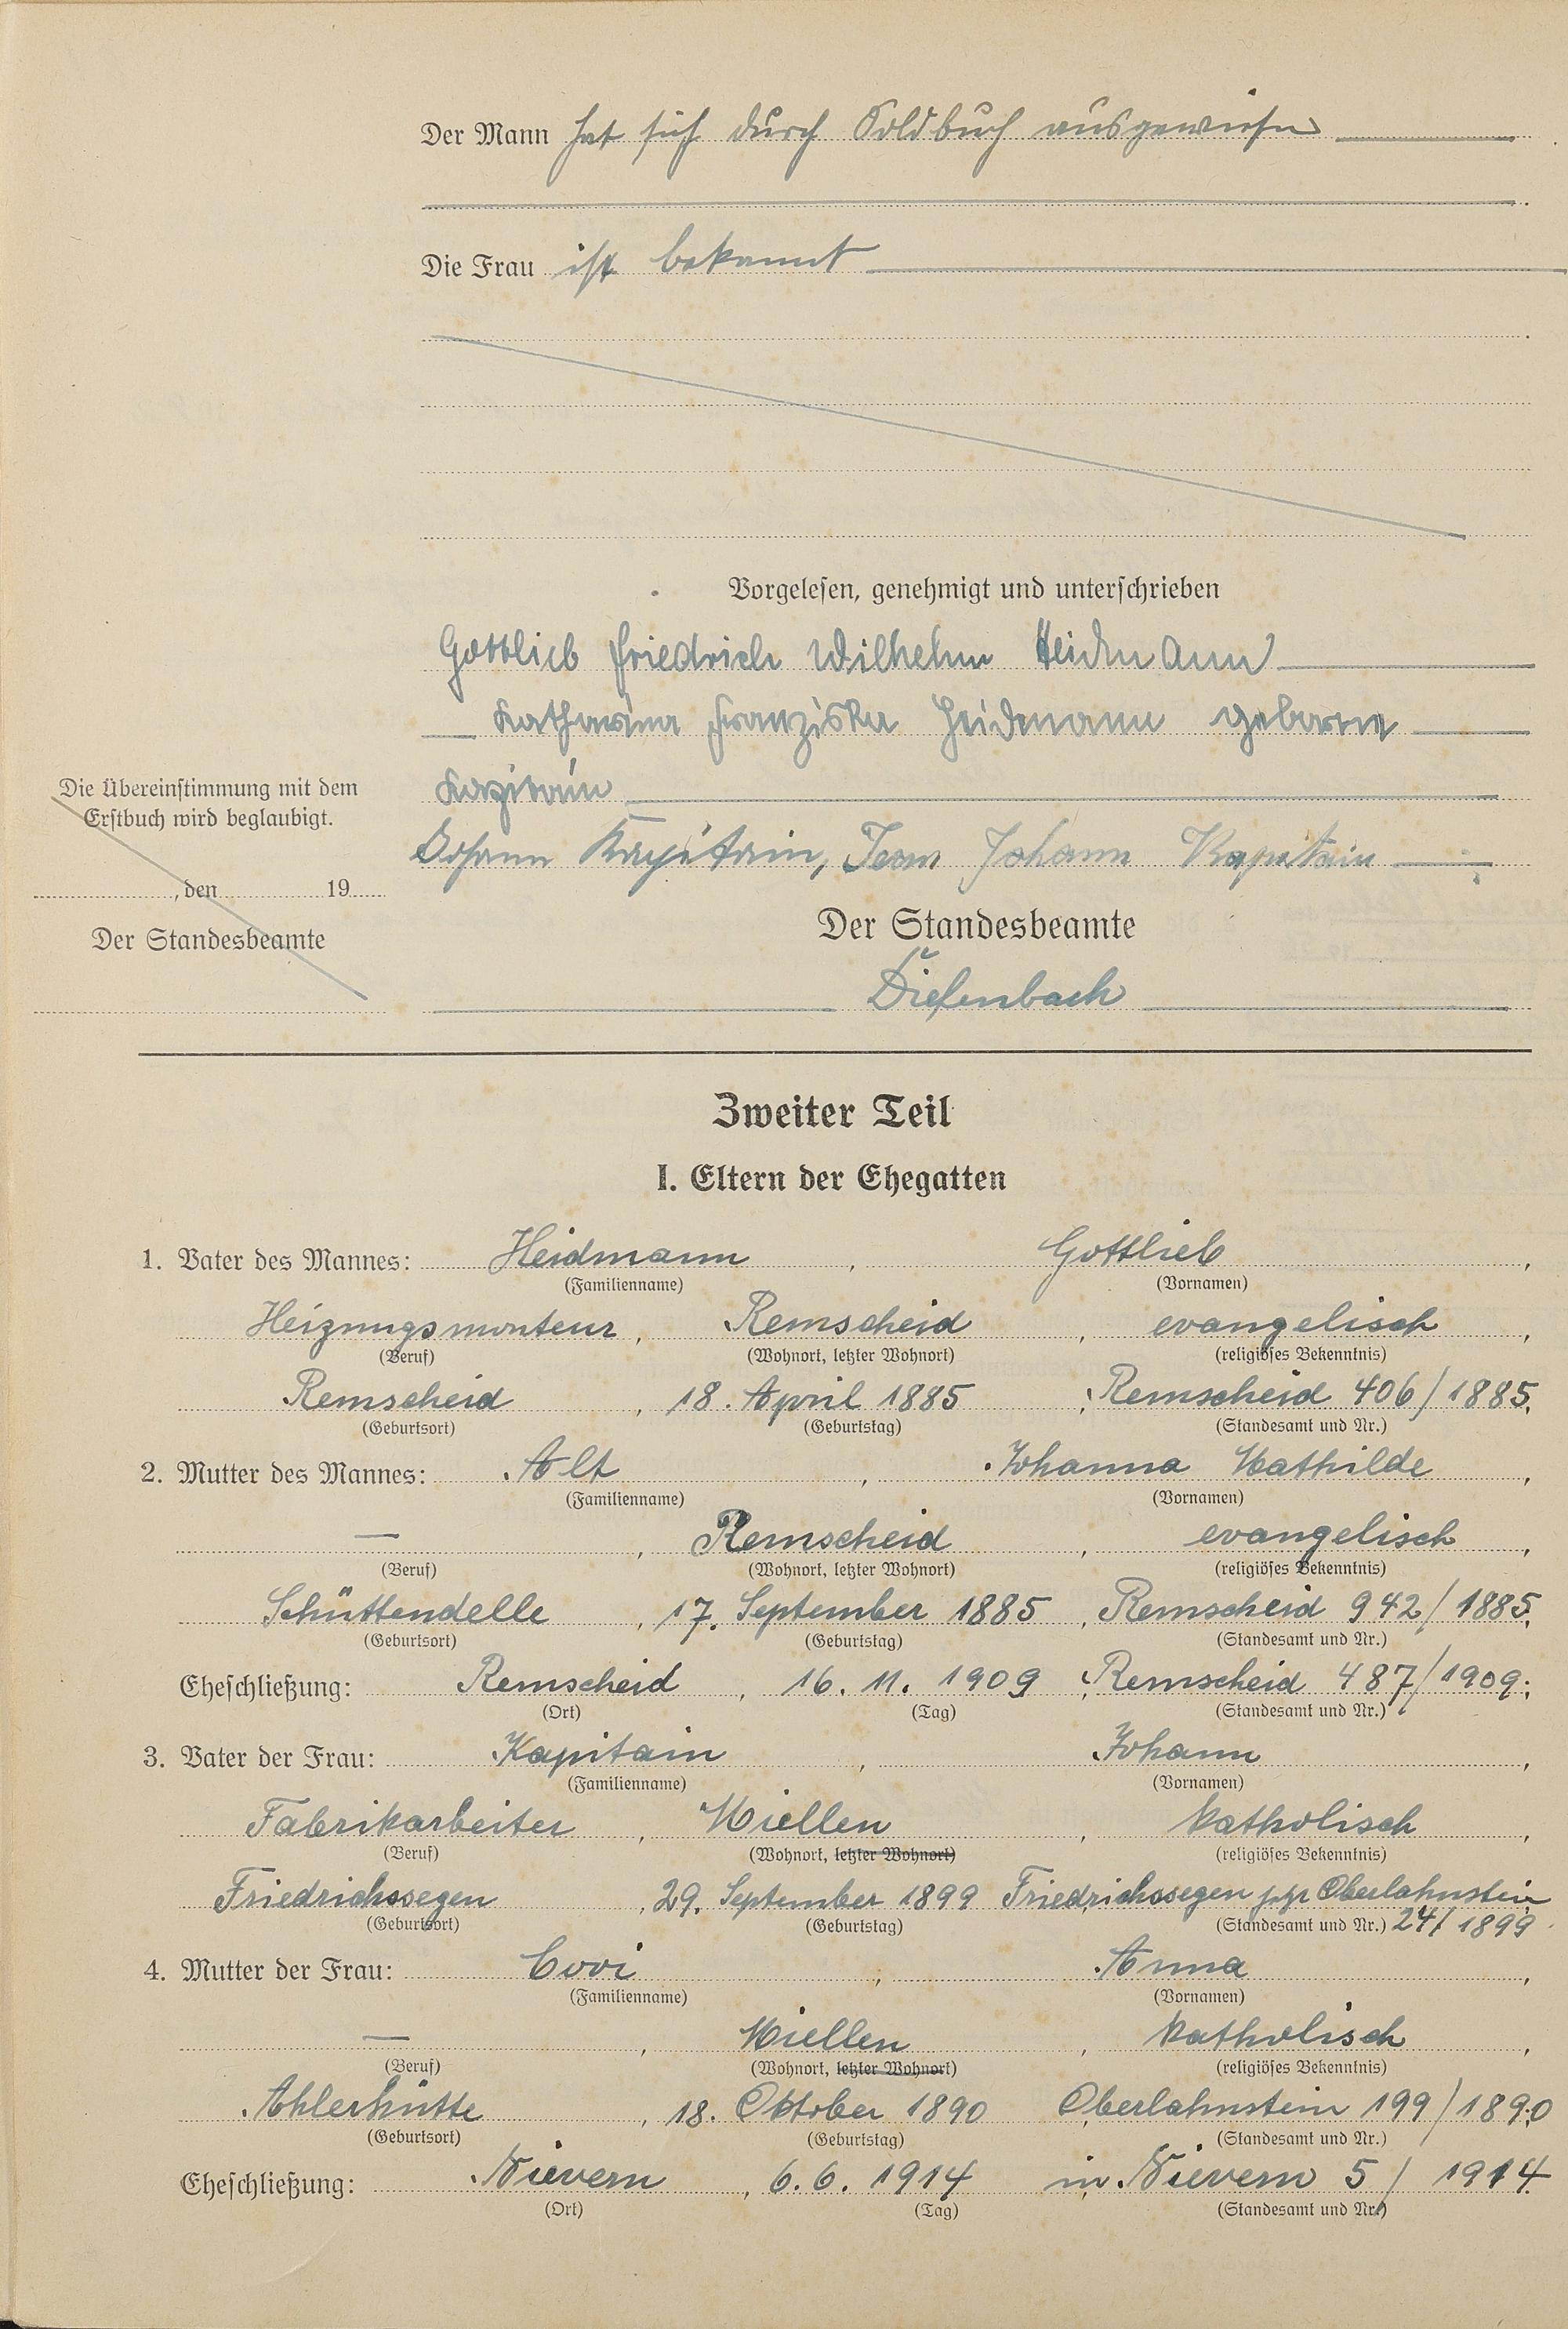 Der Mann hat sich durch Soldbuch ausgewiesen
Die Frau ist bekannt
Vorgelesen, genehmigt und unterschrieben
Gottlieb Friedrich Wilhelm Heidmann
Katharina Franziska Heidmann geborene
Kapitain
Johann Kapitain, Johann Kapitain
Die Übereinstimmung mit dem
Erstbuch wird beglaubigt.
, den 19
Der Standesbeamte
Der Standesbeamte
Diefenbach
Zweiter Teil
I. Eltern der Ehegatten
1. Vater des Mannes: Heidmann, Gottlieb,
(Familienname) (Vornamen)
Heizungsmonteur, Remscheid, evangelisch,
(Beruf) (Wohnort, letzter Wohnort) (religiöses Bekenntnis)
Remscheid, 18. April 1885, Remscheid 406/1885,
(Geburtsort) (Geburtstag) (Standesamt und Nr.)
2. Mutter des Mannes: Alt, Johanna Mathilde,
(Familienname) (Vornamen)
—, Remscheid, evangelisch,
(Beruf) (Wohnort, letzter Wohnort) (religiöses Bekenntnis)
Schüttendelle, 17. September 1885, Remscheid 942/1885,
(Geburtsort) (Geburtstag) (Standesamt und Nr.)
Eheschließung: Remscheid, 16. 11. 1909, Remscheid 487/1909;
(Ort) (Tag) (Standesamt und Nr.)
3. Vater der Frau: Kapitain, Johann,
(Familienname) (Vornamen)
Fabrikarbeiter, Miellen, katholisch,
(Beruf) (Wohnort, letzter Wohnort) (religiöses Bekenntnis)
Friedrichssegen, 29. September 1899 Friedrichssegen jetzt Oberlahnstein
(Geburtsort) (Geburtstag) (Standesamt und Nr.) 24/1899
4. Mutter der Frau: Anna,
(Familienname) (Vornamen)
—, Miellen, katholisch,
(Beruf) (Wohnort, letzter Wohnort) (religiöses Bekenntnis)
Ahlerhütte, 18. Oktober 1890 Oberlahnstein 199/1890
(Geburtsort) (Geburtstag) (Standesamt und Nr.)
Eheschließung: Nievern, 6. 6. 1914 in Nievern 5/1914
(Ort) (Tag) (Standesamt und Nr.)